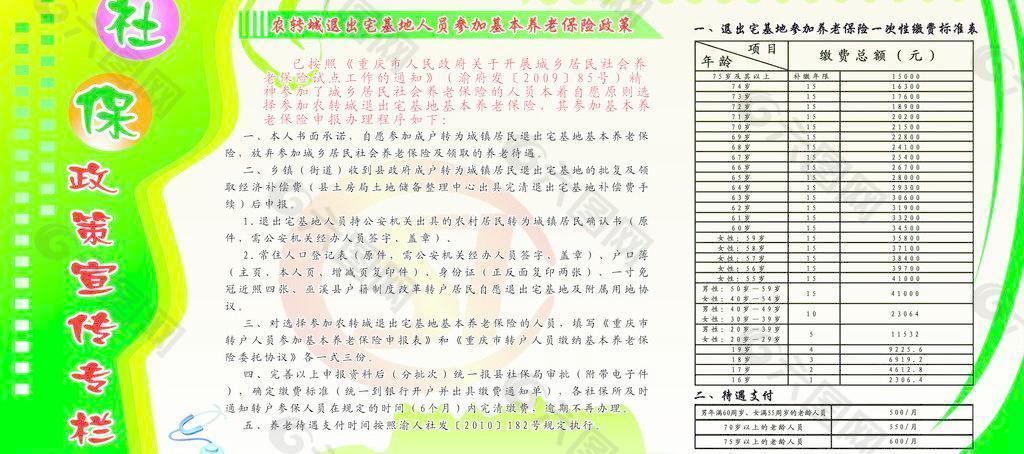 社
保
政
策
宣
传
专
栏
农转城退出宅基地人员参加基本养老保险政策
已按照《重庆市人民政府关于开展城乡居民社会养
老保险试点工作的通知》(渝府发〔2009〕85号)精
神参加了城乡居民社会养老保险的人员本着自愿原则选
择参加农转城退出宅基地基本养老保险,其参加基本养
老保险申报办理程序如下:
一、本人书面承诺,自愿参加成户转为城镇居民退出宅基地基本养老保
险,放弃参加城乡居民社会养老保险及领取的养老待遇。
二、乡镇(街道)收到县政府成户转为城镇居民退出宅基地的批复及领
取经济补偿费(县土房局土地储备整理中心出具完清退出宅基地补偿费手
续)后申报。
1.退出宅基地人员持公安机关出具的农村居民转为城镇居民确认书(原
件,需公安机关经办人员签字、盖章)。
2.常住人口登记表(原件,需公安机关经办人员签字、盖章)、户口簿
(主页、本人页、增减页复印件)、身份证(正反面复印两张)、一寸免
冠近照四张、巫溪县户籍制度改革转户居民自愿退出宅基地及附属用地协
议。
三、对选择参加农转城退出宅基地基本养老保险的人员,填写《重庆市
转户人员参加基本养老保险申报表》和《重庆市转户人员缴纳基本养老保
险委托协议》各一式三份。
四、完善以上申报资料后(分批次)统一报县社保局审批(附带电子件
),确定缴费标准(统一到银行开户并出具缴费通知单),各社保所及时
通知转户参保人员在规定的时间(6个月)内完清缴费,逾期不再办理。
五、养老待遇支付时间按照渝人社发〔2010〕182号规定执行。
一、退出宅基地参加养老保险一次性缴费标准表
项目 年龄 缴费总额(元)
75岁及其以上 补缴年限 15000
74岁 15 16300
73岁 15 17600
72岁 15 18900
71岁 15 20200
70岁 15 21500
69岁 15 22800
68岁 15 24100
67岁 15 25400
66岁 15 26700
65岁 15 28000
64岁 15 29300
63岁 15 30600
62岁 15 31900
61岁 15 33200
60岁 15 34500
女性:59岁 15 35800
女性:58岁 15 37100
女性:57岁 15 38400
女性:56岁 15 39700
女性:55岁 15 41000
男性:50岁-59岁
女性:40岁-54岁 15 41000
男性:40岁-49岁
女性:30岁-39岁 10 23064
男性:20岁-39岁
女性:20岁-29岁 5 11532
19岁 4 9225.6
18岁 3 6919.2
17岁 2 4612.8
16岁 1 2306.4
二、待遇支付
男年满60周岁、女满55周岁的老龄人员 500/月
70岁以上的老龄人员 550/月
75岁以上的老龄人员 600/月